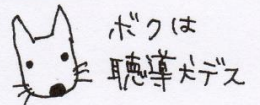 ボクは
聴導犬デス